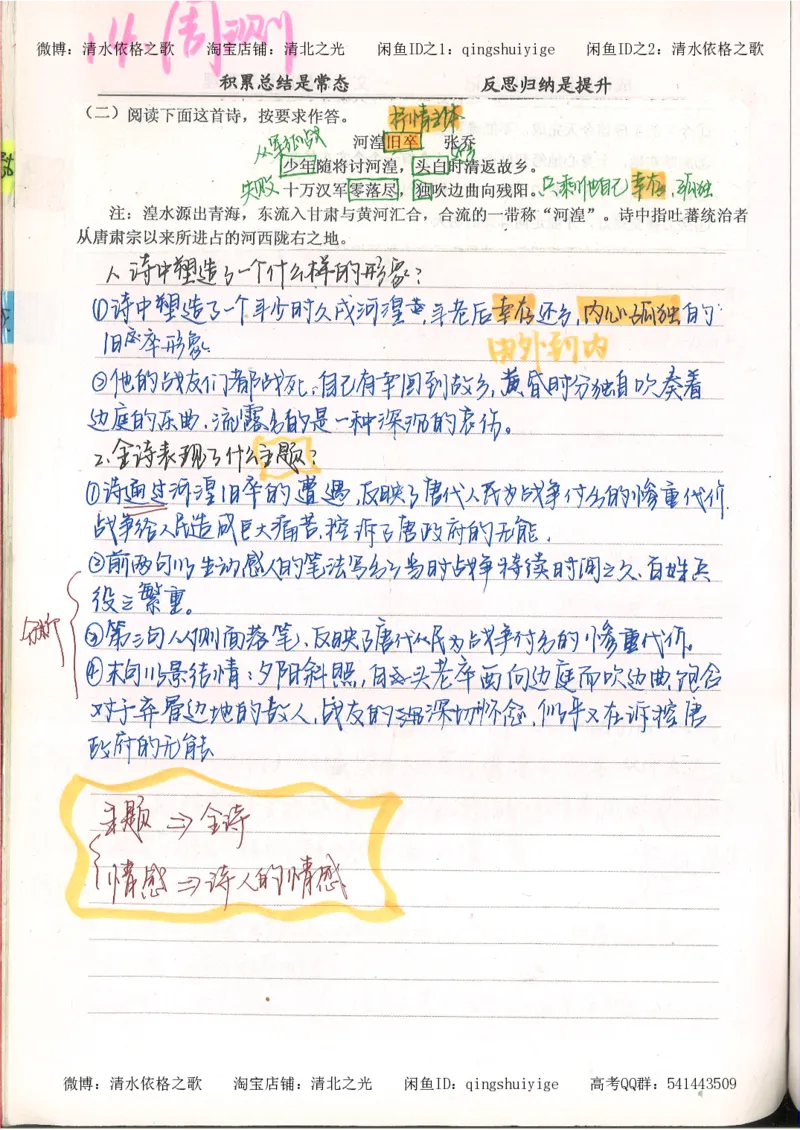 微博：清水依格之歌 淘宝店铺：清北之光 闲鱼ID之1：qingshuiyige 闲鱼ID之2：清水依格之歌
周测
积累总结是常态 反思归纳是提升
(二) 阅读下面这首诗，按要求作答。
抒情主体
河湟旧卒 张乔
少年随将讨河湟，头白时清返故乡。
失败 十万汉军零落尽，独吹边曲向残阳。只剩他自己幸存，孤独
注：湟水源出青海，东流入甘肃与黄河汇合，合流的一带称“河湟”。诗中指吐蕃统治者
从唐肃宗以来所进占的河西陇右之地。
1、诗中塑造了一个什么样的形象？
①诗中塑造了一个年少时久戍河湟，年老后幸存还乡，内心孤独的
旧卒形象
由外到内
②他的战友们都战死，自己有幸回到故乡，黄昏时分独自吹奏着
边庭的乐曲，流露出的是一种深沉的哀伤。
2、全诗表现了什么主题？
①诗通过河湟旧卒的遭遇，反映了唐代人民为战争付出的惨重代价.
战争给人民造成巨大痛苦，控诉了唐政府的无能.
②前两句以生动感人的笔法写出了当时战争持续时间之久、百姓兵
役之繁重。
分析
③第三句从侧面落笔，反映了唐代人民为战争付出的惨重代价。
④末句以景结情：夕阳斜照，白头老卒面向边庭而吹边曲，饱含
对于弃骨边地的故人，战友的深切怀念，似乎又在诉控唐
政府的无能
主题 ⇒ 全诗
情感 ⇒ 诗人的情感
微博：清水依格之歌 淘宝店铺：清北之光 闲鱼ID：qingshuiyige 高考QQ群：541443509